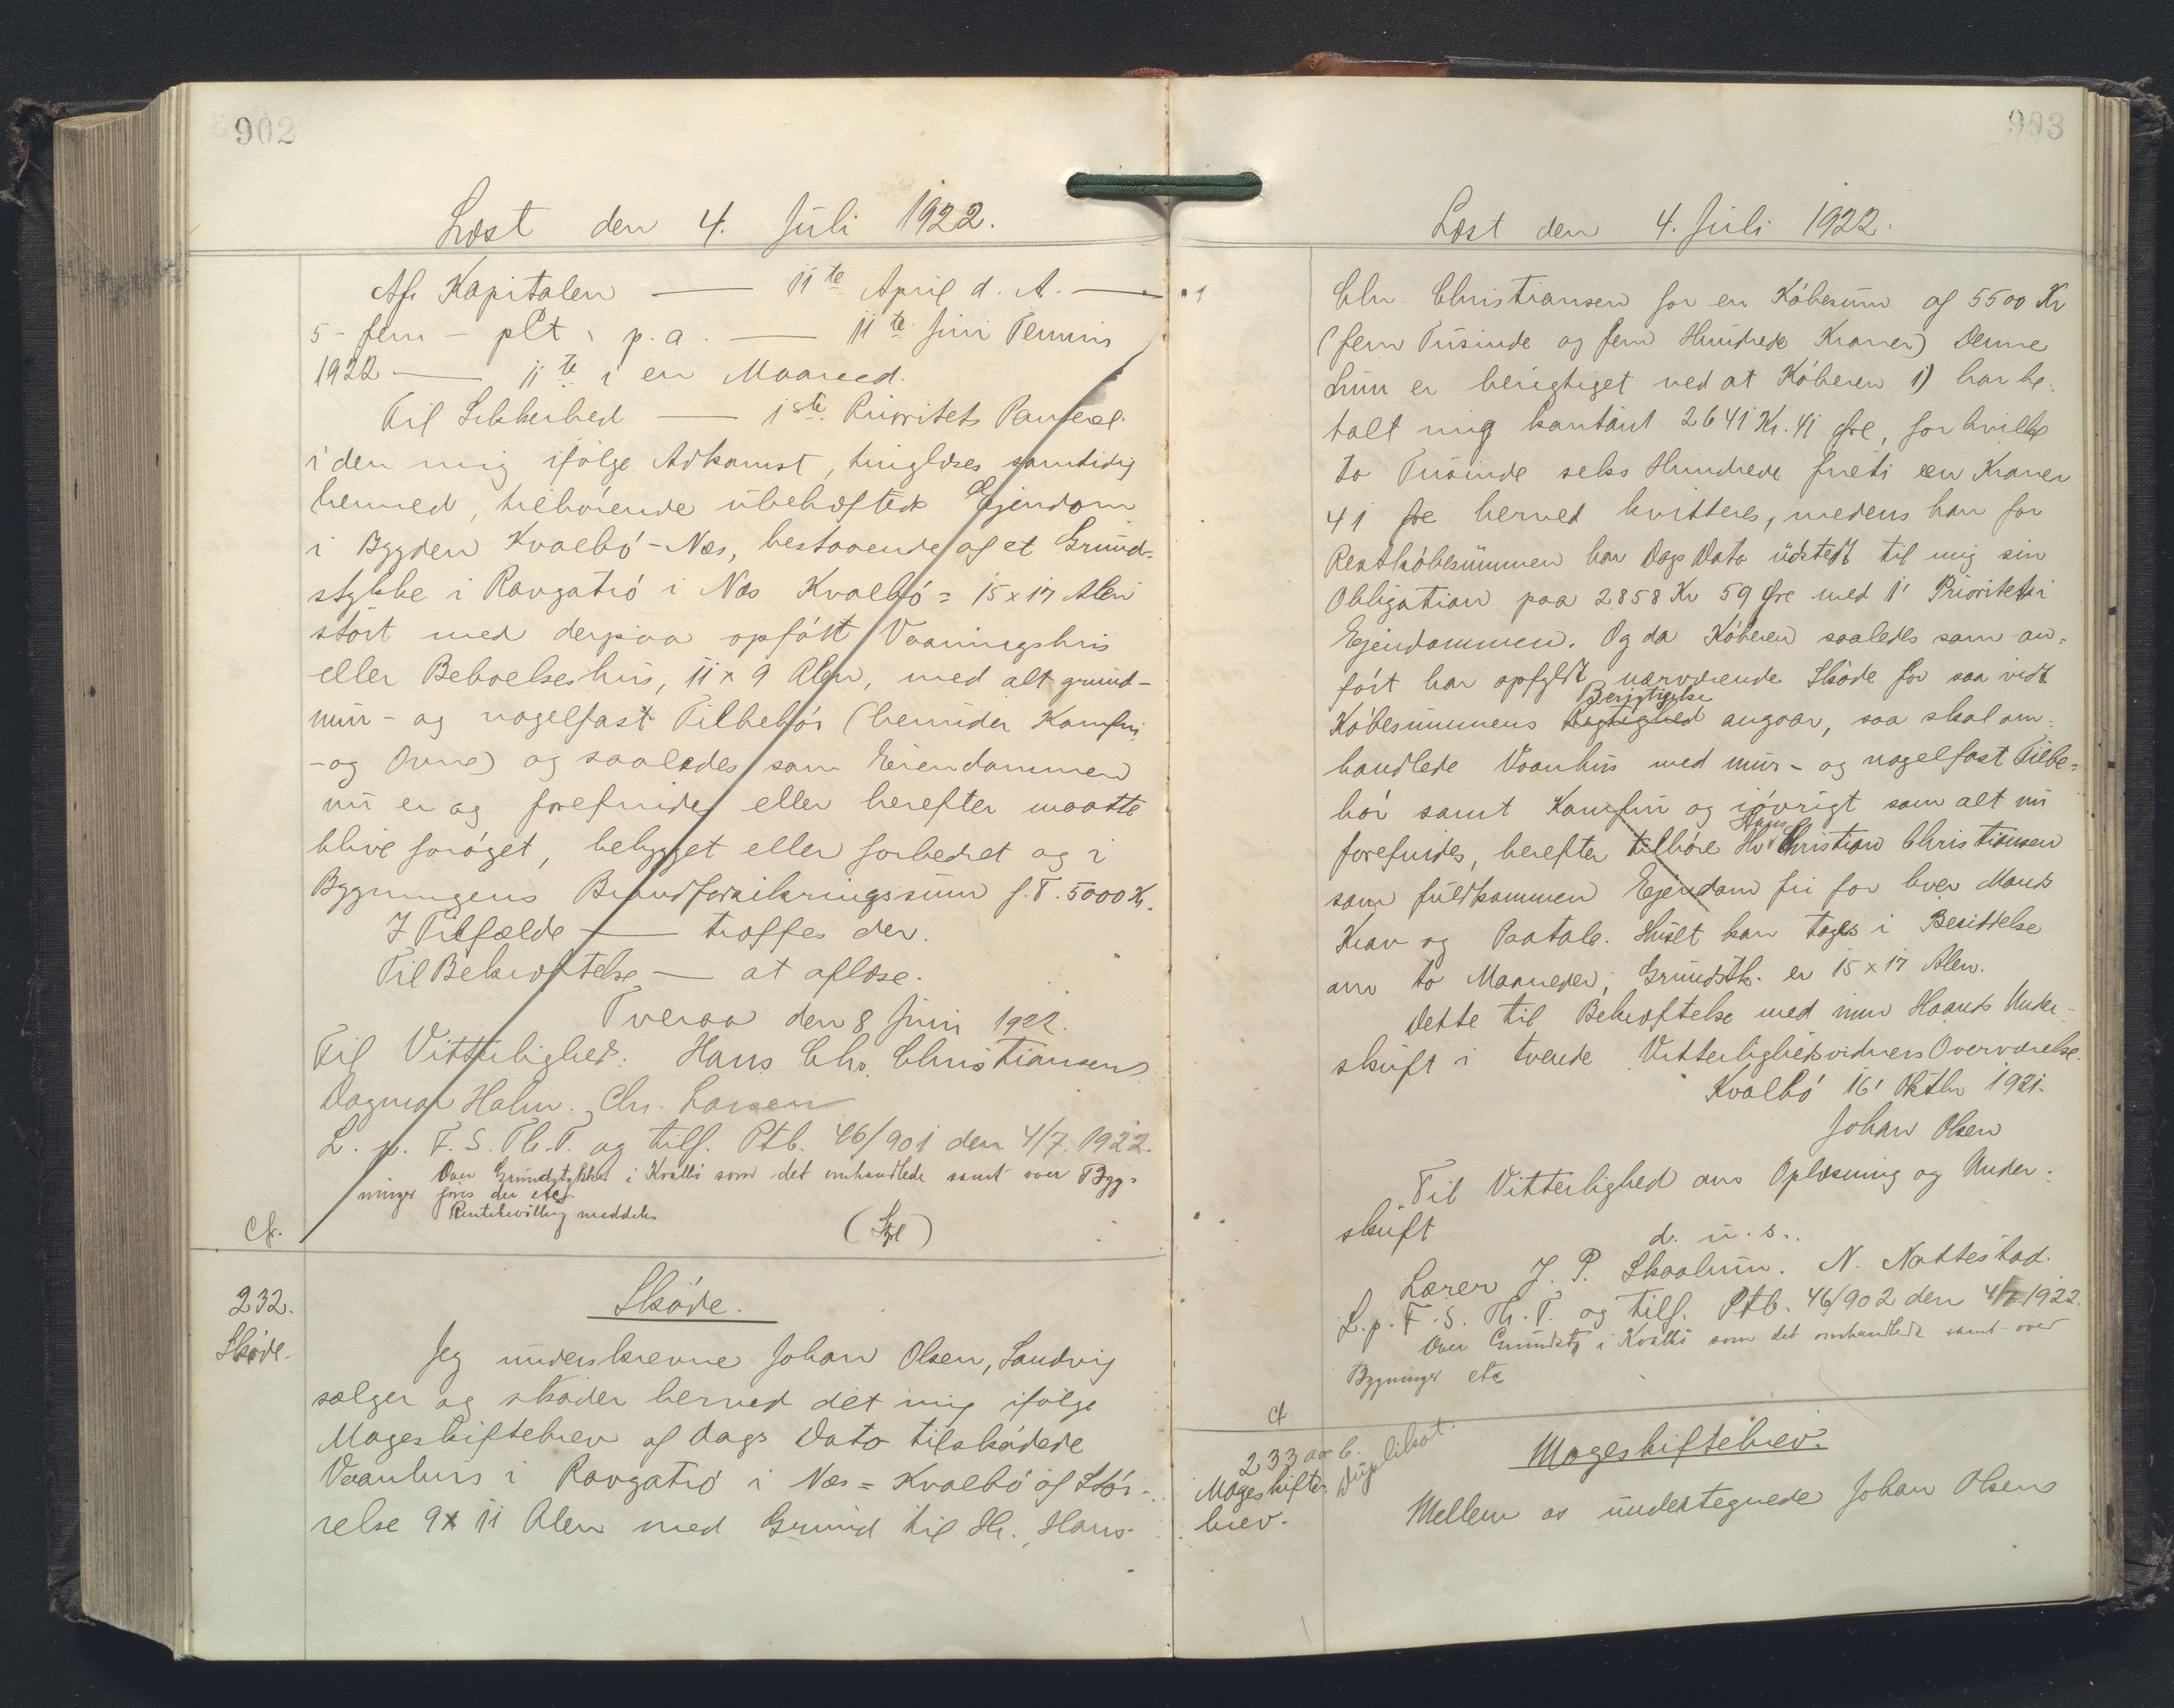 902
Læst den 4. Juli 1922.
Af Kapitalen — 11te April d. A. —
5 - fem - pCt. p. a. — 11te Juni Termin
1922 — 11te i en Maaned.
Til Sikkerhed — 1ste Prioritets Panteret
i den mig ifølge Adkomst, tinglæses samtidig
hermed, tilhørende ubehæftede Ejendom
i Bygden Kvalbø-Næs, bestaaende af et Grund-
stykke i Ravgatrø i Næs Kvalbø = 15 x 17 Alen
stórt med derpaa opført Vaaningshus
eller Beboelseshus, 11 x 9 Alen, med alt grund-
mur- og nagelfast Tilbehør (herunder Komfur
- og Ovne) og saaledes som Eiendommen
nu er og forefindes eller herefter maatte
blive forøget, bebygget eller forbedret og i
Bygningens Brandforsikringssum f. T. 5000 Kr.
I Tilfælde — træffes der.
Til Bekræftelse — at aflæse.
Tveraa den 8 Juni 1922.
Til Vitterlighed: Hans Chr. Christiansen
Dagmar Holm. Chr. Larsen
L. p. F. S. Th. T. og tilf. Ptb. 46/901 den 4/7 1922.
Over Grundstykket i Kvalbø som det omhandlede samt over Byg-
ninger föris der etc.
Rentebevilling meddeles
(Styl)
Cfr.
232.
Skóde.
Skóde.
Jeg underskrevne Johan Olsen, Sandvig
sælger og skøder herved det mig ifølge
Mageskiftebrev af Dags Dato tilskødede
Vaanhus i Ravgatrø i Næs = Kvalbø af Stør-
relse 9 x 11 Alen med Grund til Hr. Hans
903
Læst den 4. Juli 1922.
Chr. Christiansen for en Købesum af 5500 Kr
(fem Tusinde og fem Hundrede Kroner) Denne
Sum er berigtiget ved at Køberen 1) har be-
talt mig kontant 2641 Kr. 41 Øre, for hvilke
to Tusinde seks Hundrede firti een Kroner
41 Øre herved kvitteres, medens han for
Restkøbesummen har Dags Dato udstedt til mig sin
Obligation paa 2858 Kr 59 Øre med 1' Prioritet i
Ejendommen. Og da Køberen saaledes som an-
ført har opfyldt nærværende Skøde for saa vidt
Berigtigelse
Købesummens Rigtighed angaar, saa skal om-
handlede Vaanhus med mur- og nagelfast Tilbe-
hør samt Komfur og iøvrigt som alt nu
Hans
forefindes, herefter tilhøre Hr Christian Christiansen
som fuldkommen Ejendom fri for hver Mands
Krav og Paatale. Huset kan tages i Besiddelse
om to Maaneder; Grundstk. er 15 x 17 Alen.
Dette til Bekræftelse med min Haands Under-
skrift i tvende Vitterlighedsvidners Overværelse.
Kvalbø 16' Oktbr 1921.
Johan Olsen
Til Vitterlighed om Oplæsning og Under-
skrift
d. u. s..
Lærer J. P. Skaalum. N. Nattestad.
L. p. F. S. Th. T. og tilf. Ptb. 46/902 den 4/7 1922.
Over Grundstk i Kvalbø som det omhandlede samt over
Bygninger etc
Cfr.
233 a og b.
Mageskifte-
brev.
Duplikat.
Mageskiftebrev.
Mellem os undertegnede Johan Olsen